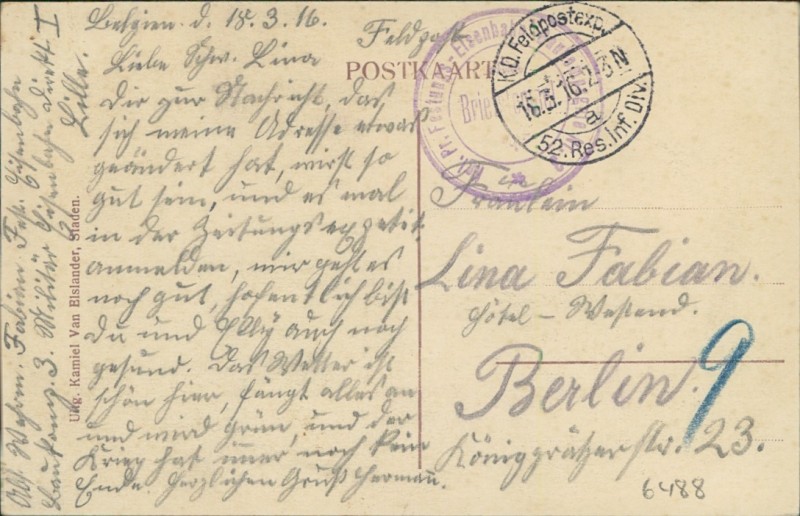 Belgien d. 15.3.16.
Feldpost
POSTKAART
Liebe Schw. Lina
Dir zur Nachricht, das
sich meine Adresse etwas
geändert hat, wirst so
gut sein, und es mal
in der Zeitungsexpetit.
anmelden, mir geht es
noch gut, hofentlich bist
du und Elly auch noch
gesund. Das Wetter ist
schön hier, fängt alles an
und wird grün, und der
Krieg hat imer noch kein
Ende. Herzlichen Gruß Hermann.
Abs. Wehrm. Fabian Fest. Eisenbahn
Baukomp. 3. Militär Eisenbahn Direkt. I
Lille.
Uitg. Kamiel Van Elslander, Staden.
K.D. Feldpostexp.
16.3.16. 2-3 N
a
52. Res. Inf. Div.
Kgl. Pr. Festungs-Eisenbahn
Brie
Fräulein
Lina Fabian.
Hôtel – Westend.
Berlin. 9
Königgrätzer Str. 23.
6488